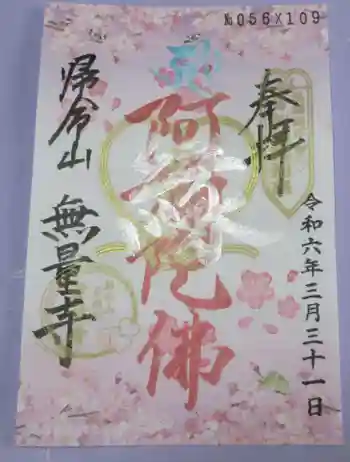 №056×109
奉拝
令和六年三月三十一日
阿弥陀佛
帰命山
無量寺